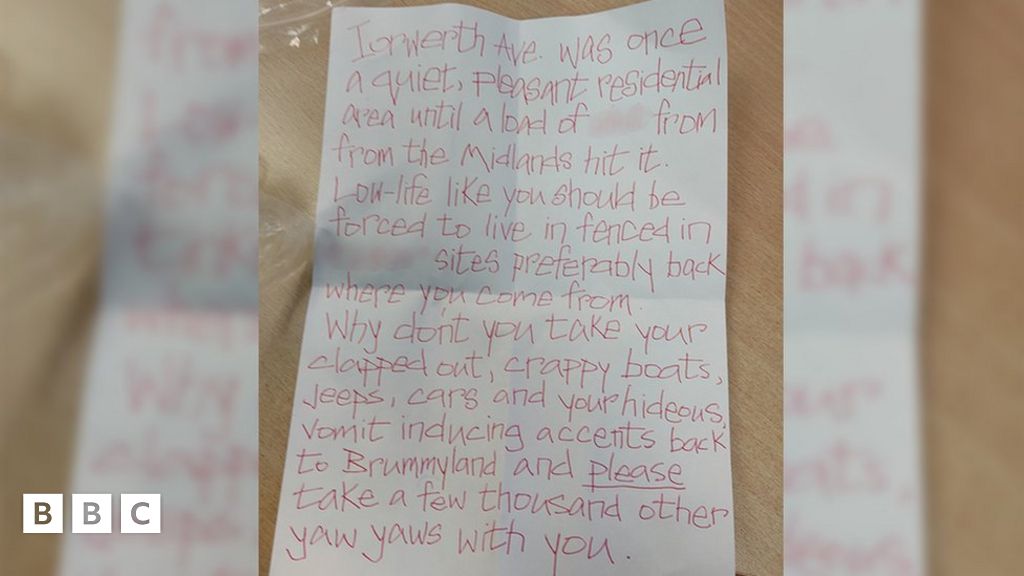 Iorwerth Ave. was once
a quiet, pleasant residential
area until a load of from
from the Midlands hit it.
Low-life like you should be
forced to live in fenced in
sites preferably back
where you come from.
Why don't you take your
clapped out, crappy boats,
Jeeps, cars and your hideous,
vomit inducing accents back
to Brummyland and please
take a few thousand other
yaw yaws with you.
BBC